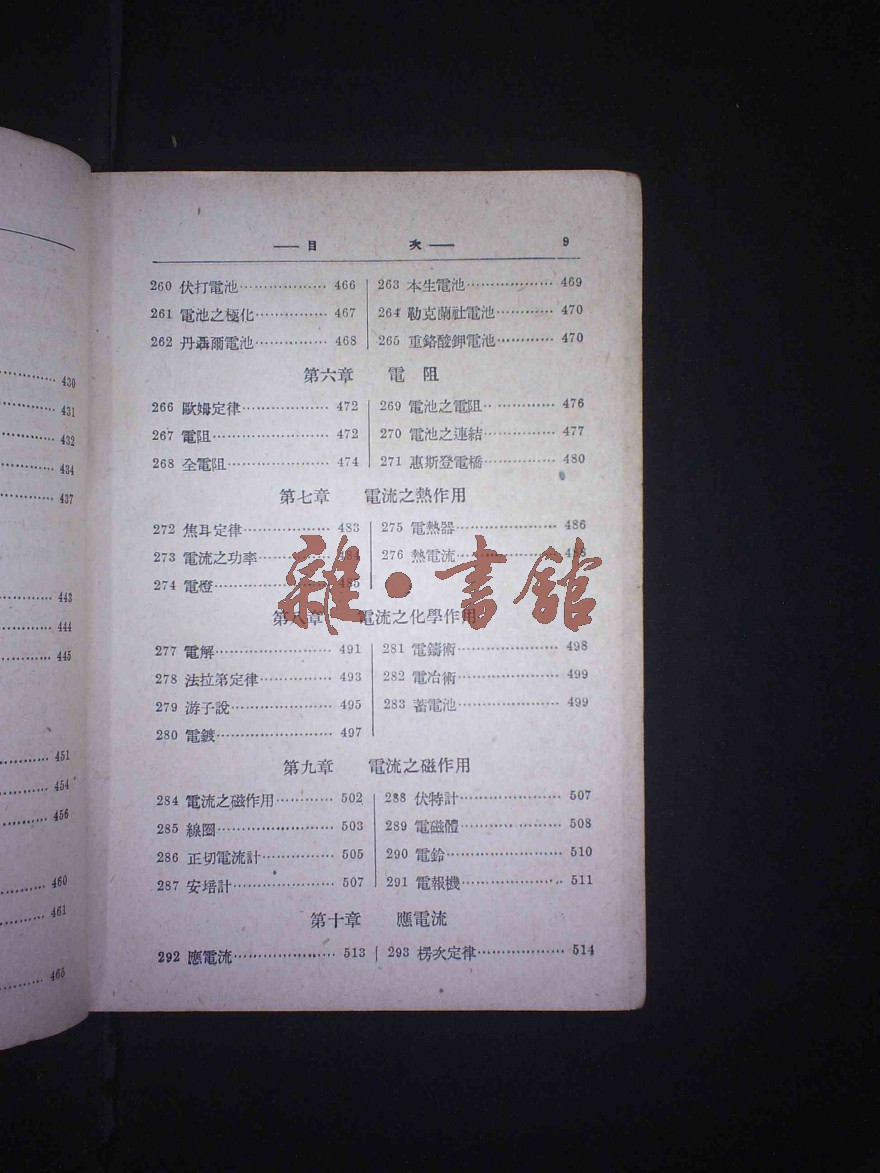 目 次 9
260 伏打電池 466
261 電池之極化 467
262 丹聶爾電池 468
263 本生電池 469
264 勒克蘭社電池 470
265 重鉻酸鉀電池 470
第六章 電阻
266 歐姆定律 472
267 電阻 472
268 全電阻 474
269 電池之電阻 476
270 電池之連結 477
271 惠斯登電橋 480
第七章 電流之熱作用
272 焦耳定律 483
273 電流之功率 484
274 電燈 485
275 電熱器 486
276 熱電流 488
雜·書館
第八章 電流之化學作用
277 電解 491
278 法拉第定律 493
279 游子說 495
280 電鍍 497
281 電鑄術 498
282 電冶術 499
283 蓄電池 499
第九章 電流之磁作用
284 電流之磁作用 502
285 線圈 503
286 正切電流計 505
287 安培計 507
288 伏特計 507
289 電磁體 508
290 電鈴 510
291 電報機 511
第十章 應電流
292 應電流 513
293 楞次定律 514
430
431
432
434
437
443
444
445
451
454
456
460
461
465